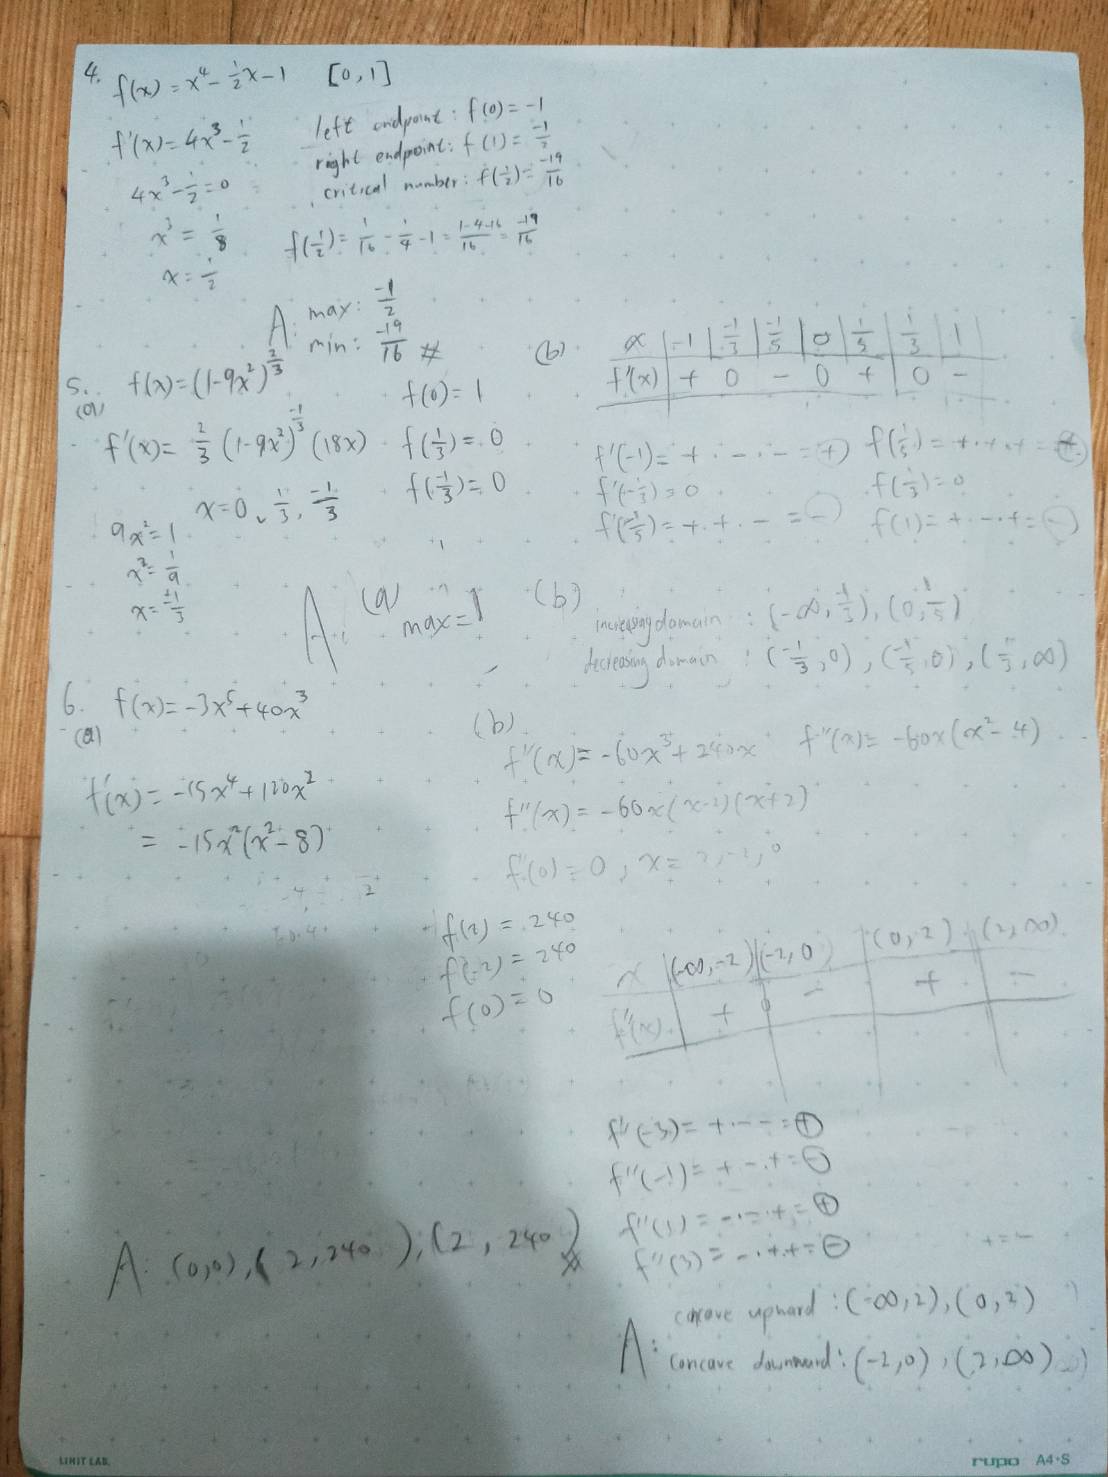 4. f(x) = x⁴ - 1/2 x - 1 [0, 1]
f'(x) = 4x³ - 1/2
4x³ - 1/2 = 0
x³ = 1/8
x = 1/2
left endpoint: f(0) = -1
right endpoint: f(1) = -1/2
critical number: f(1/2) = -19/16
f(1/2) = 1/16 - 1/4 - 1 = (1-4-16)/16 = -19/16
A: max: -1/2
min: -19/16 #
5. f(x) = (1-9x²)^(2/3)
(a)
f'(x) = 2/3 (1-9x²)^(-1/3) (18x)
x = 0, 1/3, -1/3
9x² = 1
x² = 1/9
x = ±1/3
f(0) = 1
f(1/3) = 0
f(-1/3) = 0
(b)
x | -1 | -1/3 | -1/5 | 0 | 1/5 | 1/3 | 1
f'(x) | + | 0 | - | 0 | + | 0 | -
f'(-1) = + · - · - = +
f'(-1/3) = 0
f'(-1/5) = + · + · - = -
f(1/5) = + · + · + = +
f(1/3) = 0
f(1) = + · - · + = -
A: (a) max = 1
(b)
increasing domain : (-∞, 1/3), (0, 1/5)
decreasing domain : (-1/3, 0), (-1/5, 0), (1/3, ∞)
6. f(x) = -3x⁵ + 40x³
(a)
f'(x) = -15x⁴ + 120x²
= -15x²(x² - 8)
f(2) = 240
f(-2) = 240
f(0) = 0
A: (0,0), (2, 240), (2, 240) #
(b)
f''(x) = -60x³ + 240x f''(x) = -60x(x² - 4)
f''(x) = -60x(x-2)(x+2)
f''(0) = 0, x = 2, -2, 0
x | (-∞, -2) | (-2, 0) | (0, 2) | (2, ∞)
f''(x) | + | - | + | -
f''(-3) = + · - · - = +
f''(-1) = + · - · + = -
f''(1) = - · - · + = +
f''(3) = - · + · + = -
A:
concave upward : (-∞, 2), (0, 2)
concave downward : (-2, 0), (2, ∞)
LIHIT LAB.
rupo A4·S